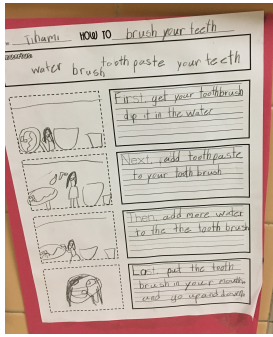 Tihami HOW TO brush your teeth
water brush toothpaste your teeth
First, get your toothbrush
dip it in the water
Next, add toothpaste
to your tooth brush
Then, add more water
to the the tooth brush
Last, put the tooth
brush in your mouth
and go up and down.